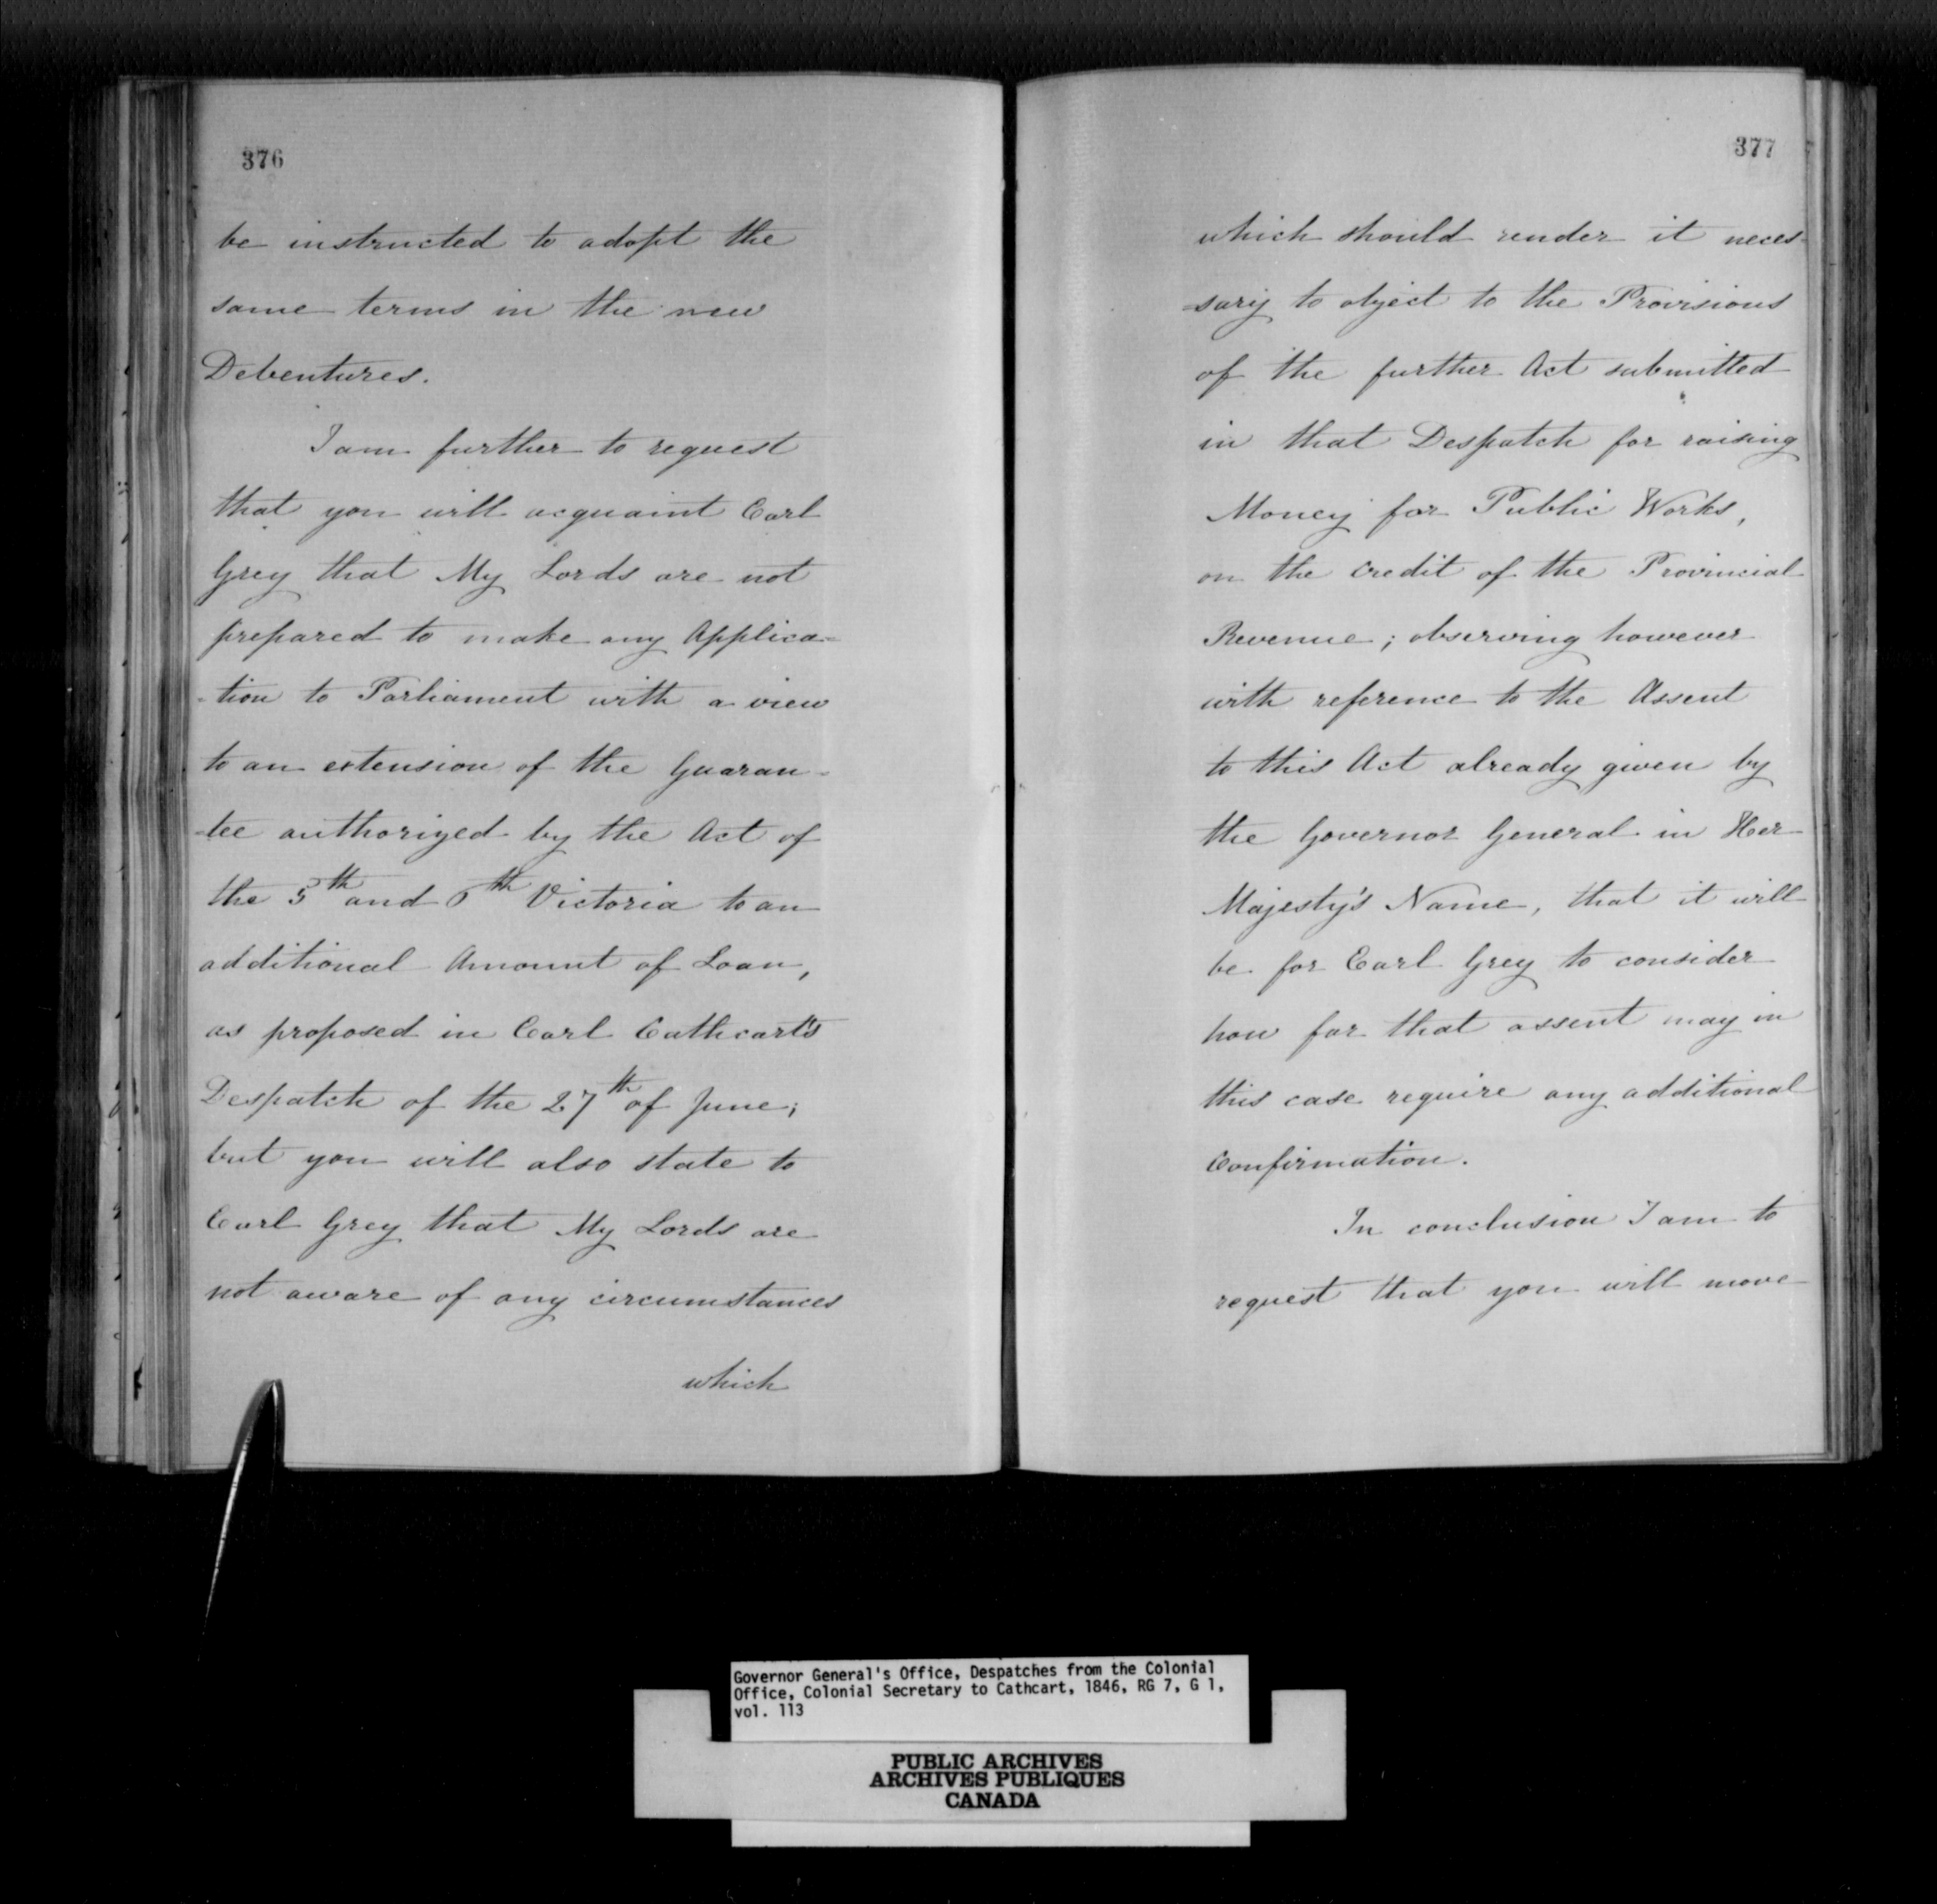 376
be instructed to adopt the
same terms in the new
Debentures.
I am further to request
that you will acquaint Earl
Grey that My Lords are not
prepared to make any Applica-
-tion to Parliament with a view
to an extension of the Guaran-
-tee authorized by the Act of
the 5th and 6th Victoria to an
additional Amount of Loan,
as proposed in Earl Cathcart's
Despatch of the 27th of June;
but you will also state to
Earl Grey that My Lords are
not aware of any circumstances
which
377
which should render it neces-
-sary to object to the Provisions
of the further Act submitted
in that Despatch for raising
Money for Public Works,
on the credit of the Provincial
Revenue; observing however
with reference to the Assent
to this Act already given by
the Governor General in Her
Majesty's Name, that it will
be for Earl Grey to consider
how far that assent may in
this case require any additional
Confirmation.
In conclusion I am to
request that you will move
Governor General's Office, Despatches from the Colonial
Office, Colonial Secretary to Cathcart, 1846, RG 7, G 1,
vol. 113
PUBLIC ARCHIVES
ARCHIVES PUBLIQUES
CANADA